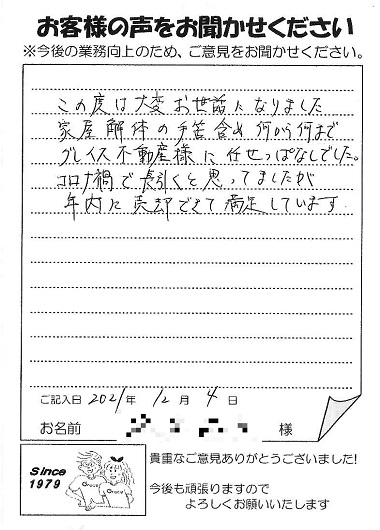 お客様の声をお聞かせください
※今後の業務向上のため、ご意見をお聞かせください。
この度は大変お世話になりました
家屋解体の手筈含め何から何まで
グレイス不動産様に任せっぱなしでした。
コロナ禍で長引くと思ってましたが
年内に売却できて満足しています
ご記入日 2021年 12月 4日
お名前 様
Since
1979
Grace
Grace
貴重なご意見ありがとうございました!
今後も頑張りますので
よろしくお願いいたします